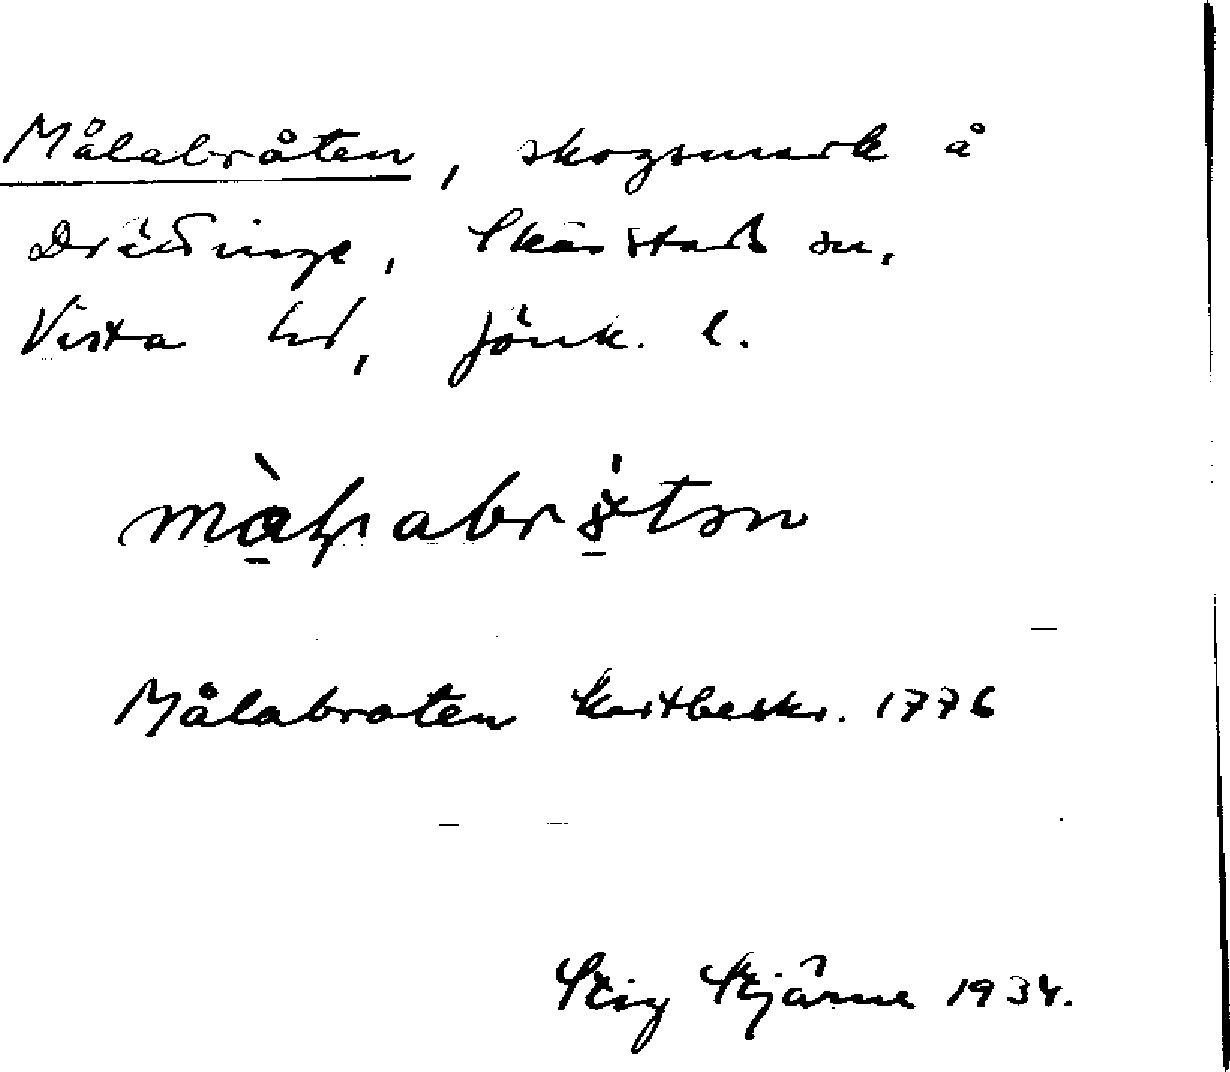 Målabråten, skogsmark å
Drättinge, Skärstads sn,
Vista hd, Jönk. l.
Målabroten Kartbeskr. 1776
Stig Stjärne 1934.